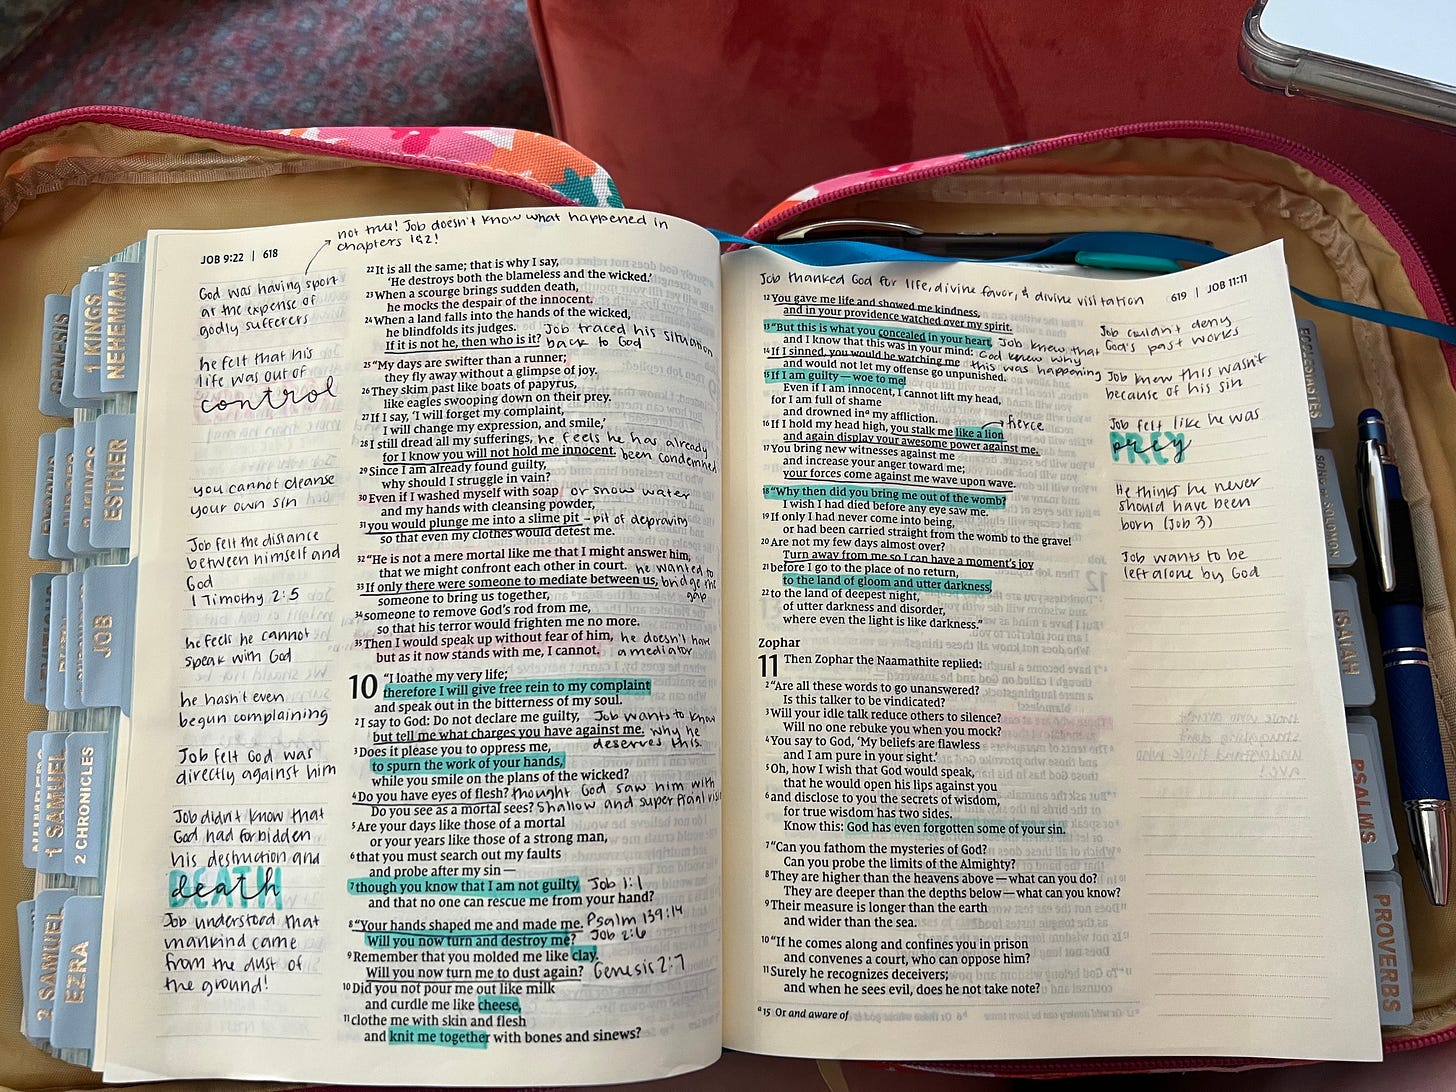 not true! Job doesn't know what happened in
chapters 1&2!
JOB 9:22 | 618
God was having sport
at the expense of
godly sufferers
he felt that his
life was out of
control
you cannot cleanse
your own sin
Job felt the distance
between himself and
God
1 Timothy 2:5
he feels he cannot
speak with God
he hasn't even
begun complaining
Job felt God was
directly against him
Job didn't know that
God had forbidden
his destruction and
DEATH
death
Job understood that
mankind came
from the dust of
the ground!
22 It is all the same; that is why I say,
'He destroys both the blameless and the wicked.'
23 When a scourge brings sudden death,
he mocks the despair of the innocent.
24 When a land falls into the hands of the wicked,
he blindfolds its judges.
If it is not he, then who is it?
Job traced his situation
back to God
25 "My days are swifter than a runner;
they fly away without a glimpse of joy.
26 They skim past like boats of papyrus,
like eagles swooping down on their prey.
27 If I say, 'I will forget my complaint,
I will change my expression, and smile,'
28 I still dread all my sufferings,
for I know you will not hold me innocent.
he feels he has already
been condemned
29 Since I am already found guilty,
why should I struggle in vain?
30 Even if I washed myself with soap or snow water
and my hands with cleansing powder,
31 you would plunge me into a slime pit - pit of depravity
so that even my clothes would detest me.
32 "He is not a mere mortal like me that I might answer him,
that we might confront each other in court.
33 If only there were someone to mediate between us,
someone to bring us together,
he wanted to
bridge the
gap
34 someone to remove God's rod from me,
so that his terror would frighten me no more.
35 Then I would speak up without fear of him,
but as it now stands with me, I cannot.
he doesn't have
a mediator
10 "I loathe my very life;
therefore I will give free rein to my complaint
and speak out in the bitterness of my soul.
2 I say to God: Do not declare me guilty,
but tell me what charges you have against me.
Job wants to know
why he
deserves this.
3 Does it please you to oppress me,
to spurn the work of your hands,
while you smile on the plans of the wicked?
4 Do you have eyes of flesh?
Do you see as a mortal sees?
thought God saw him with
shallow and superficial
5 Are your days like those of a mortal
or your years like those of a strong man,
6 that you must search out my faults
and probe after my sin —
7 though you know that I am not guilty Job 1:1
and that no one can rescue me from your hand?
8 "Your hands shaped me and made me. Psalm 139:14
Will you now turn and destroy me? Job 2:6
9 Remember that you molded me like clay.
Will you now turn me to dust again? Genesis 2:7
10 Did you not pour me out like milk
and curdle me like cheese,
11 clothe me with skin and flesh
and knit me together with bones and sinews?
Job thanked God for life, divine favor, & divine visitation
619 | JOB 11:11
12 You gave me life and showed me kindness,
and in your providence watched over my spirit.
13 "But this is what you concealed in your heart,
and I know that this was in your mind:
14 If I sinned, you would be watching me
and would not let my offense go unpunished.
Job knew that
God knew why
this was happening
15 If I am guilty — woe to me!
Even if I am innocent, I cannot lift my head,
for I am full of shame
and drowned in a my affliction.
fierce
16 If I hold my head high, you stalk me like a lion
and again display your awesome power against me.
17 You bring new witnesses against me
and increase your anger toward me;
your forces come against me wave upon wave.
18 "Why then did you bring me out of the womb?
I wish I had died before any eye saw me.
19 If only I had never come into being,
or had been carried straight from the womb to the grave!
20 Are not my few days almost over?
Turn away from me so I can have a moment's joy
21 before I go to the place of no return,
to the land of gloom and utter darkness,
22 to the land of deepest night,
of utter darkness and disorder,
where even the light is like darkness."
Zophar
11 Then Zophar the Naamathite replied:
2 "Are all these words to go unanswered?
Is this talker to be vindicated?
3 Will your idle talk reduce others to silence?
Will no one rebuke you when you mock?
4 You say to God, 'My beliefs are flawless
and I am pure in your sight.'
5 Oh, how I wish that God would speak,
that he would open his lips against you
6 and disclose to you the secrets of wisdom,
for true wisdom has two sides.
Know this: God has even forgotten some of your sin.
7 "Can you fathom the mysteries of God?
Can you probe the limits of the Almighty?
8 They are higher than the heavens above — what can you do?
They are deeper than the depths below — what can you know?
9 Their measure is longer than the earth
and wider than the sea.
10 "If he comes along and confines you in prison
and convenes a court, who can oppose him?
11 Surely he recognizes deceivers;
and when he sees evil, does he not take note?
a 15 Or and aware of
Job couldn't deny
God's past works
Job knew this wasn't
because of his sin
Job felt like he was
PREY
prey
He thinks he never
should have been
born (Job 3)
Job wants to be
left alone by God
GENESIS
1 KINGS
NEHEMIAH
2 KINGS
ESTHER
JOB
NUMBERS
1 SAMUEL
2 CHRONICLES
2 SAMUEL
EZRA
ECCLESIASTES
SONG OF SOLOMON
ISAIAH
PSALMS
PROVERBS